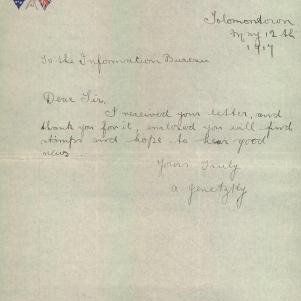 Solomontown
May 12th
1917
To the Information Bureau
Dear Sir,
I received your letter, and
thank you for it, enclosed you will find
stamps and hope to hear good
news
Yours Truly
A Genetzky